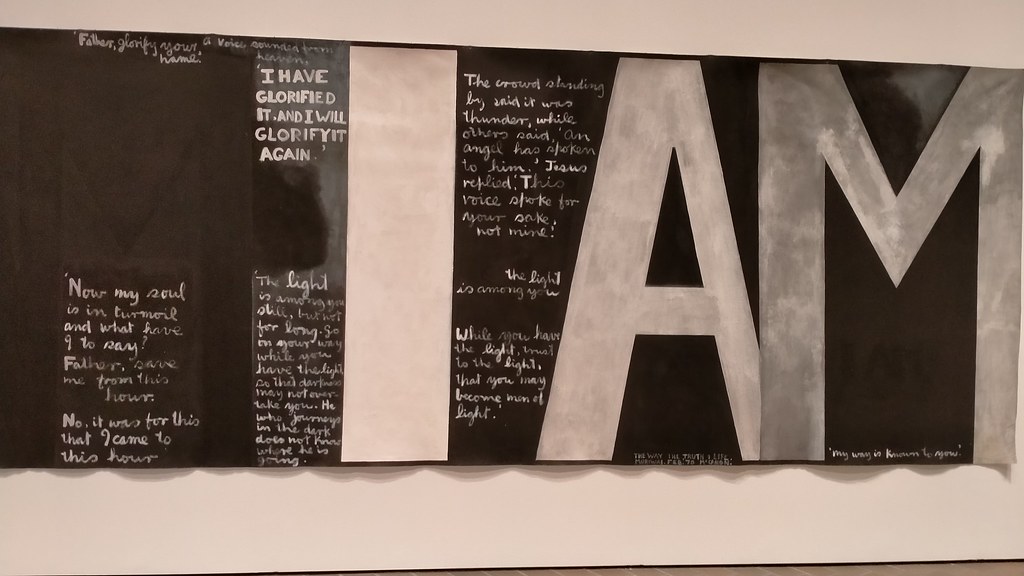 'Father, glorify your
name.'
A voice sounded from
heaven:
I HAVE
GLORIFIED
IT. AND I WILL
GLORIFY IT
AGAIN.'
'Now my soul
is in turmoil
and what have
I to say?
Father, save
me from this
hour.
No, it was for this
that I came to
this hour
'The light
is among you
still, but not
for long. So
on your way
while you
have the light
so that darkness
may not over
take you. He
who journeys
in the dark
does not know
where he is
going.
I
The crowd standing
by said it was
thunder, while
others said, 'An
angel has spoken
to him.' Jesus
replied, 'This
voice spoke for
your sake,
not mine!
the light
is among you
While you have
the light, trust
to the light,
that you may
become men of
light.'
AM
THE WAY THE TRUTH LIFE
FEB. '70
'my way is known to you.'